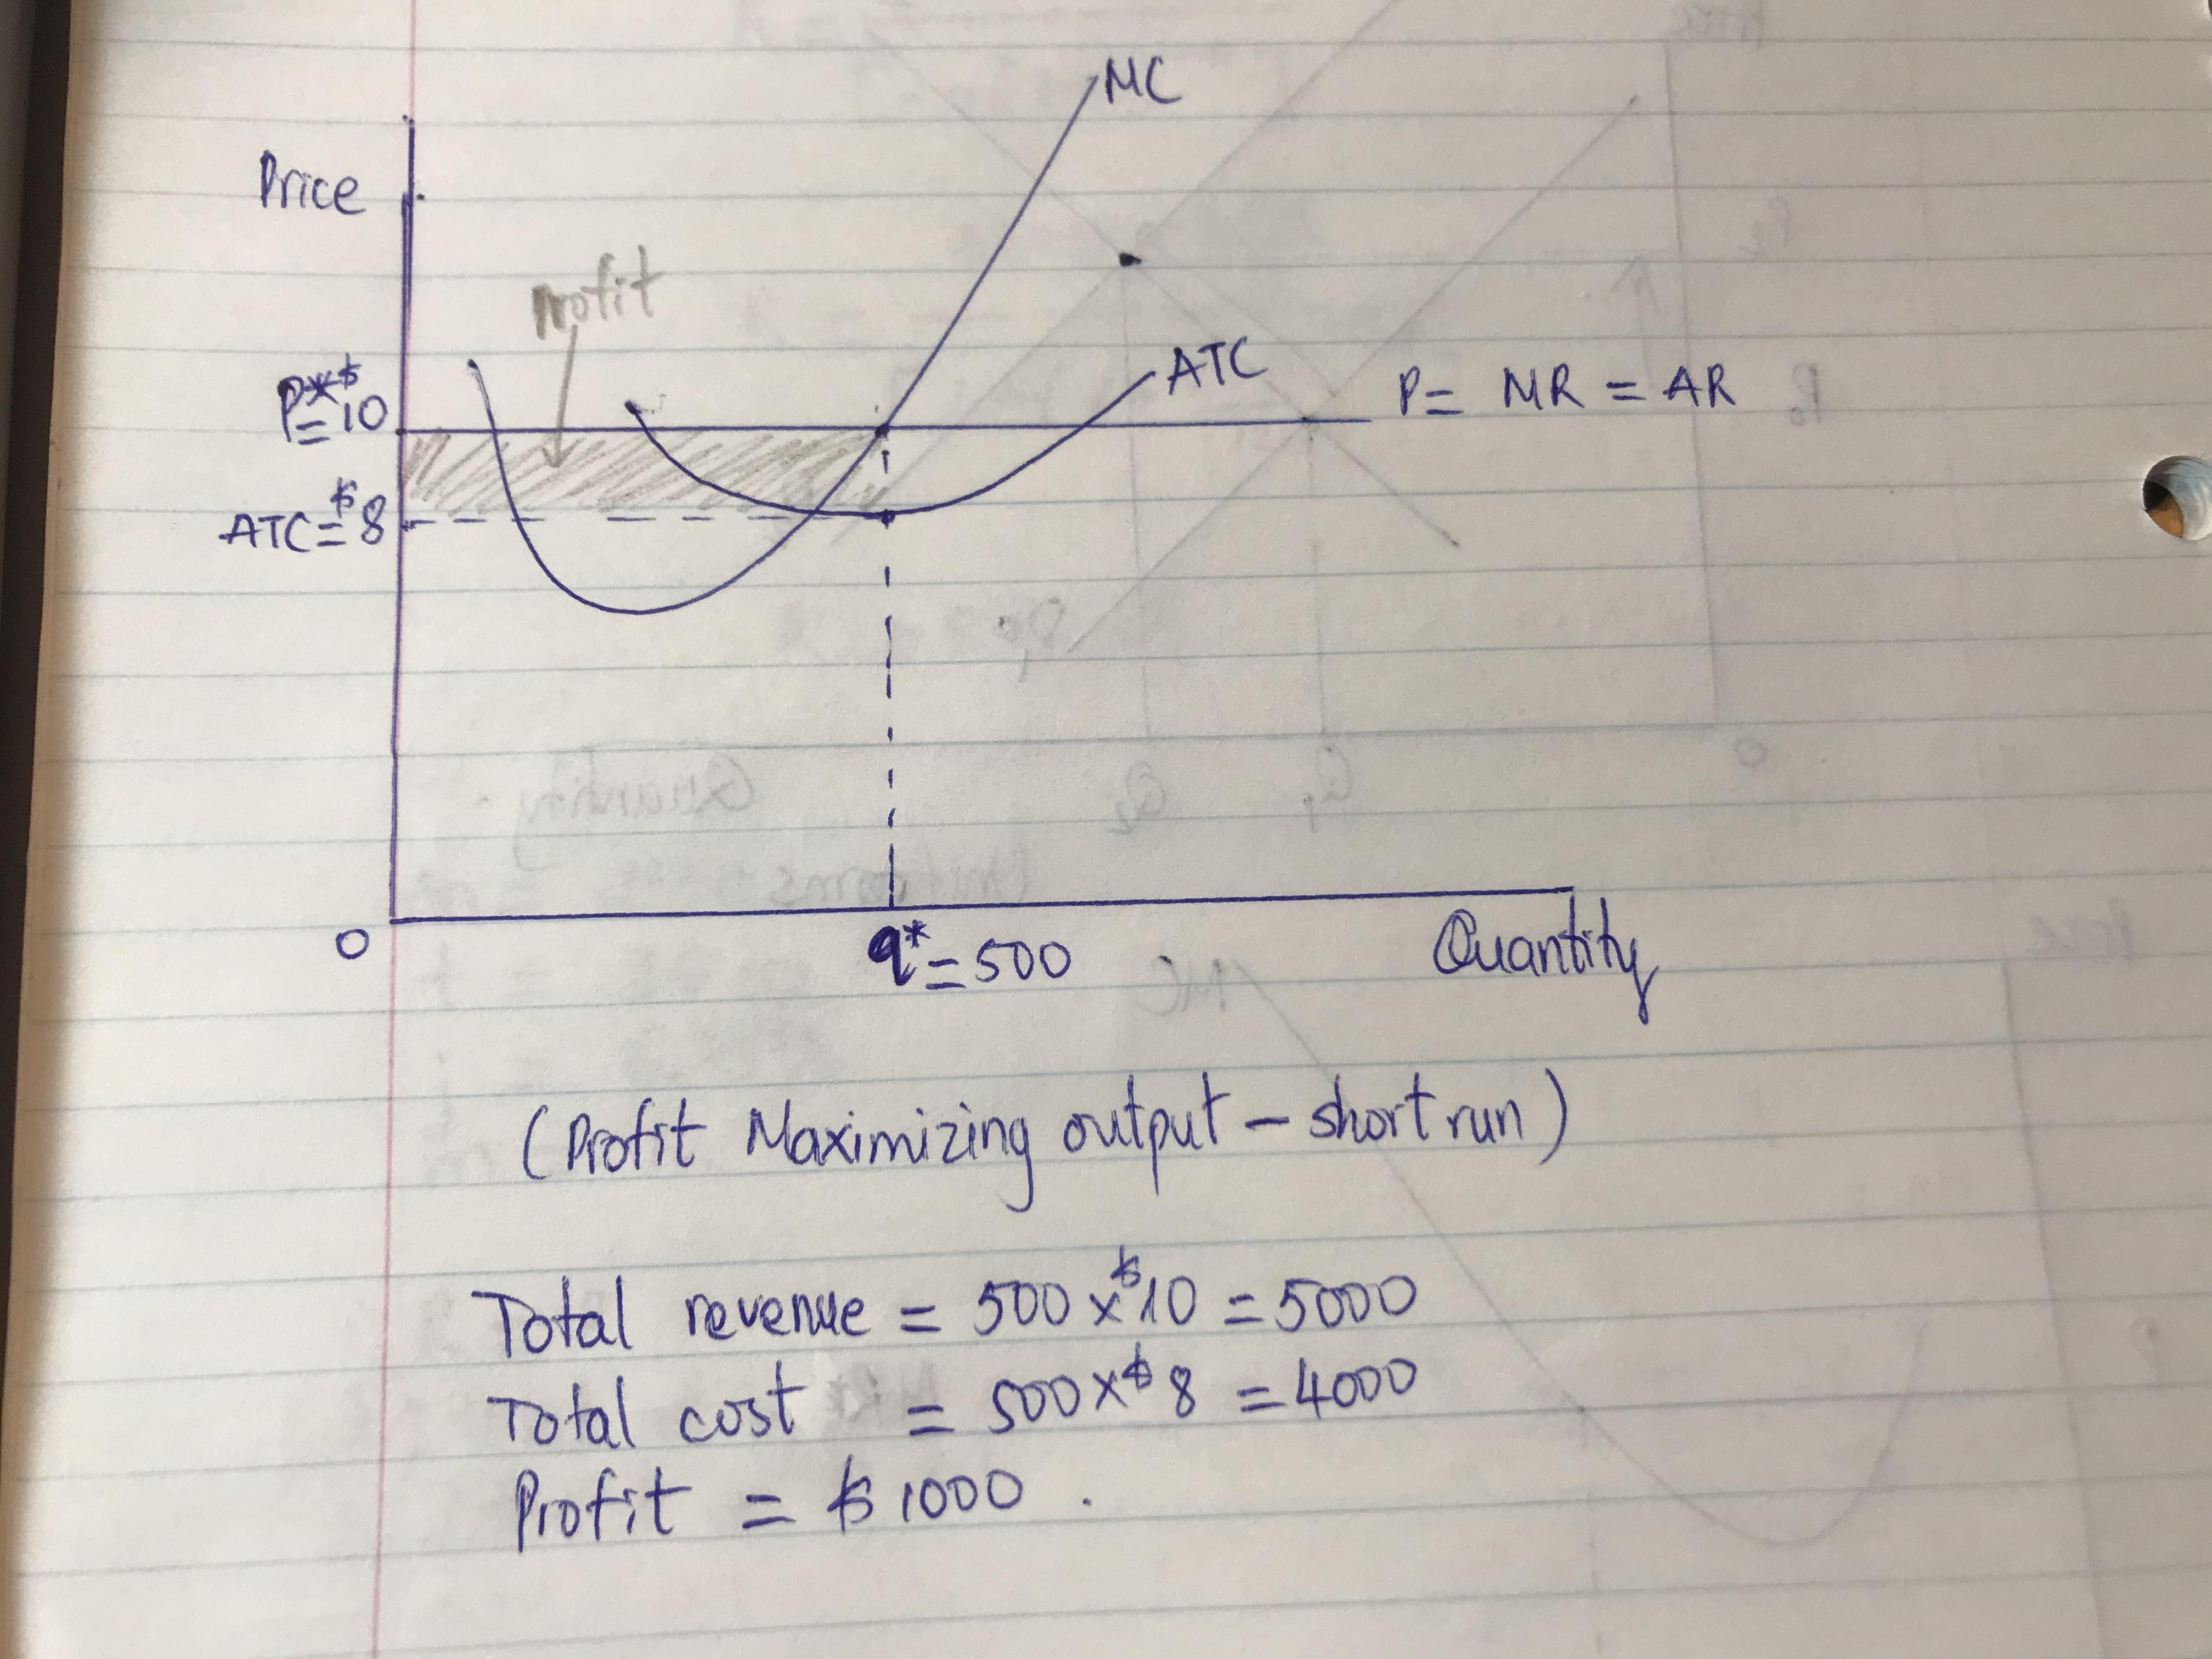 MC
Price
Profit
P*=$10
ATC
P= MR = AR
ATC=$8
0
q*=500
Quantity
(Profit Maximizing output - short run)
Total revenue = 500 x $10 = 5000
Total cost = 500 x $8 = 4000
Profit = $1000.